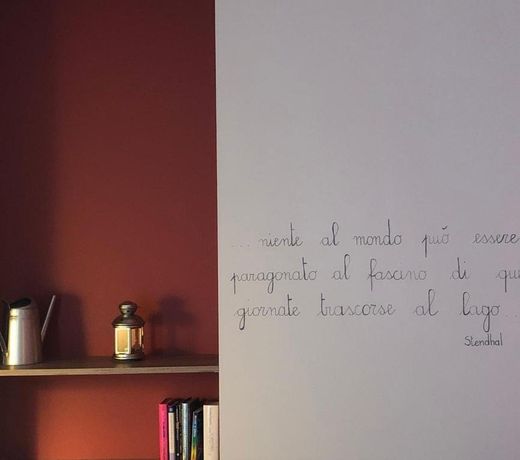 ... niente al mondo può essere
paragonato al fascino di
giornate trascorse al lago...
Stendhal